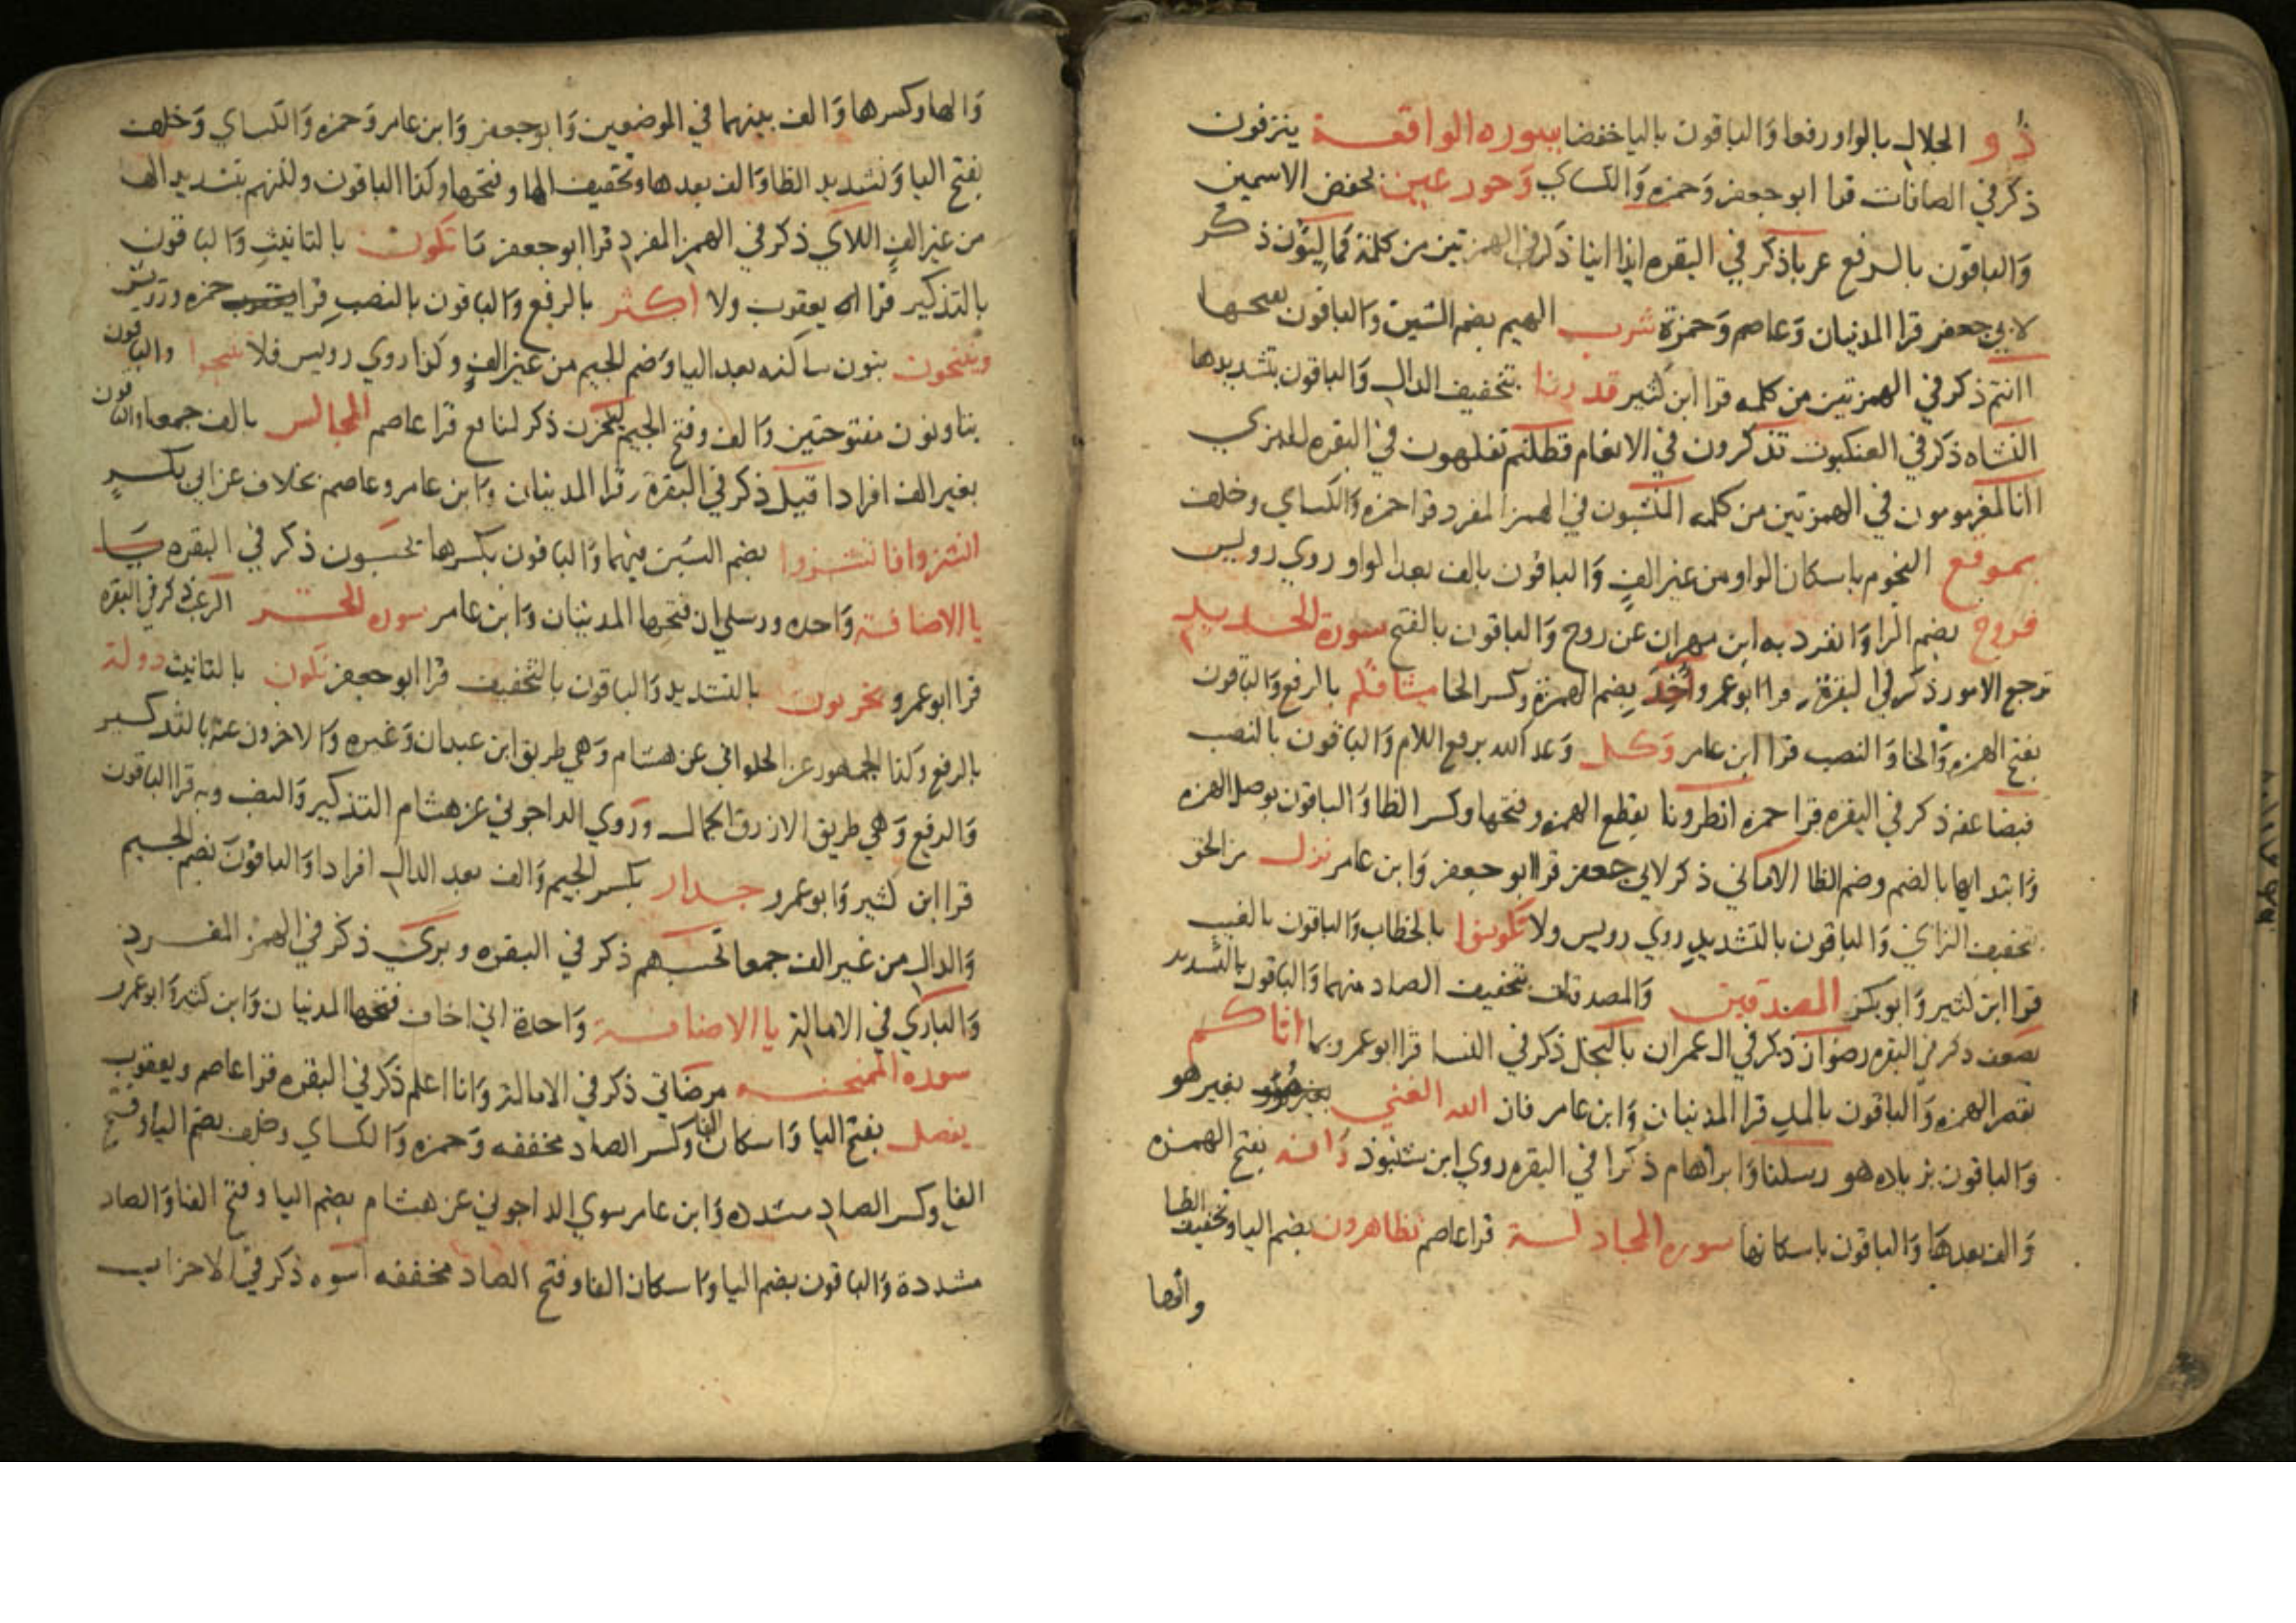 ذو الجلال بالواو رفعا والباقون باليا خفضا سوره الواقعة ينزفون
ذكر في الصافات قرا ابو جعفر وحمزه والكساي وحور عين بخفض الاسمين
والباقون بالرفع عربا ذكر في البقره ائذا اينا ذكر في الهمزتين من كلمة فماليئون ذكر
لابي جعفر قرا المدنيان وعاصم وحمزة شرب الهيم بضم الشين والباقون بفتحها
اانتم ذكر في الهمزتين من كلمه قرا ابن كثير قدرنا بتخفيف الدال والباقون بتشديدها
النشاه ذكر في العنكبوت تذكرون في الانعام فظلتم تفكهون في البقره للبزي
اانا لمغرمومون في الهمزتين من كلمه المنشون في الهمز المفرد قرا حمزه والكساي وخلف
بموقع النجوم باسكان الواو من غير الف والباقون بالف بعد الواو روي رويس
فروح بضم الرا وانفرد به ابن مهران عن روح والباقون بالفتح سورة الحديد
ترجع الامور ذكر في البقرة قرا ابو عمرو واخذ بضم الهمزة وكسر الخا ميثاقكم بالرفع والباقون
بفتح الهمزه والخا والنصب قرا ابن عامر وكل وعد الله برفع اللام والباقون بالنصب
فيضاعفه ذكر في البقره قرا حمزه انظرونا بقطع الهمزه وفتحها وكسر الظا والباقون بوصل الهمزه
وابتداىها بالضم وضم الظا الاماني ذكر لابي جعفر قرا ابو جعفر وابن عامر نزل من الحق
بتخفيف الزاي والباقون بالتشديد روي رويس ولا تكونوا بالخطاب والباقون بالغيب
قرا ابن كثير وابو بكر المصدقين والمصدقات بتخفيف الصاد منهما والباقون بالتشديد
يضعف ذكر في البقره رضوان ذكر في ال عمران بالبخل ذكر في النسا قرا ابو عمرو بما اتاكم
بقصر الهمزه والباقون بالمد قرا المدنيان وابن عامر فان الله الغني بغير هو
والباقون بزياده هو رسلنا وابراهام ذكرا في البقره روي ابن شنبوذ رافه بفتح الهمزه
والف بعدها والباقون باسكانها سوره المجادلة قرا عاصم يظاهرون بضم اليا وتخفيف الظا
والها
والها وكسرها والف بينهما في الموضعين وابو جعفر وابن عامر وحمزه والكساي وخلف
بفتح اليا وتشديد الظا والف بعدها وتخفيف الها وفتحها وكذا الباقون ولكنهم بتشديد الها
من غير الف اللاي ذكر في الهمز المفرد قرا ابو جعفر ما تكون بالتانيث والباقون
بالتذكير قرا يعقوب ولا اكثر بالرفع والباقون بالنصب قرا حمزه ورويس
وينتجون بنون ساكنه بعد اليا وضم الجيم من غير الف وكذا روي رويس فلا تنتجوا والباقون
بتا ونون مفتوحتين والف وفتح الجيم ليحزن ذكر لنافع قرا عاصم المجالس بالف جمعا والباقون
بغير الف افرادا قيل ذكر في البقرة قرا المدنيان وابن عامر وعاصم بخلاف عن ابي بكر
انشزوا فانشزوا بضم الشين فيهما والباقون بكسرها يحسبون ذكر في البقره
يا الاضافة واحده ورسلي ان فتحها المدنيان وابن عامر سوره الحشر الرعب ذكر في البقره
قرا ابو عمرو يخربون بالتشديد والباقون بالتخفيف قرا ابو جعفر تكون بالتانيث دولة
بالرفع وكذا الجمهور عن الحلواني عن هشام وهي طريق ابن عبدان وغيره والاخرون عنه بالتذكير
والرفع وهي طريق الازرق الجمال وروي الداجوني عن هشام التذكير والنصب وبه قرا الباقون
قرا ابن كثير وابو عمرو جدار بكسر الجيم والف بعد الدال افرادا والباقون بضم الجيم
والدال من غير الف جمعا تحسبهم ذكر في البقره وبري ذكر في الهمز المفرد
والباري في الامالة يا الاضافة واحدة اني اخاف فتحها المدنيان وابن كثير وابو عمرو
سوره الممتحنه مرضاتي ذكر في الامالة وانا اعلم ذكر في البقره قرا عاصم ويعقوب
يفصل بفتح اليا واسكان الفا وكسر الصاد مخففه وحمزه والكساي وخلف بضم اليا وفتح
الفا وكسر الصاد مشدده وابن عامر سوي الداجوني عن هشام بضم اليا وفتح الفا والصاد
مشددة والباقون بضم اليا واسكان الفا وفتح الصاد مخففه اسوه ذكر في الاحزاب